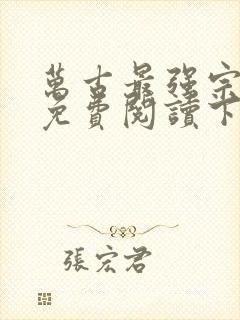 萬古最强宗
免費閱讀下
張宏君